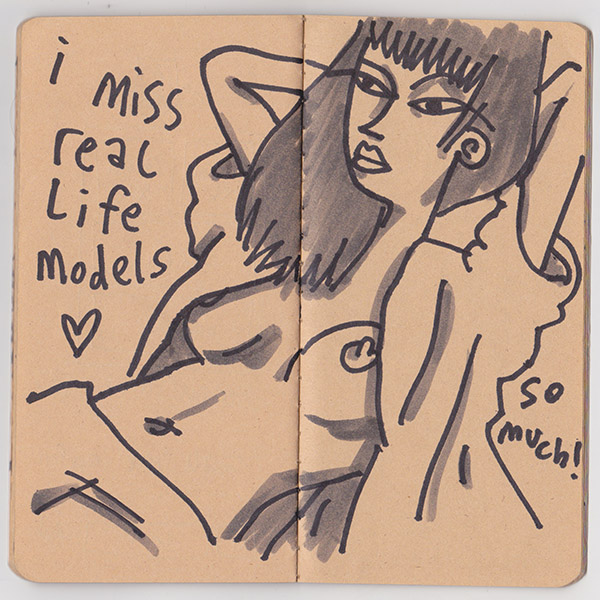 i
miss
real
Life
models
so
much!